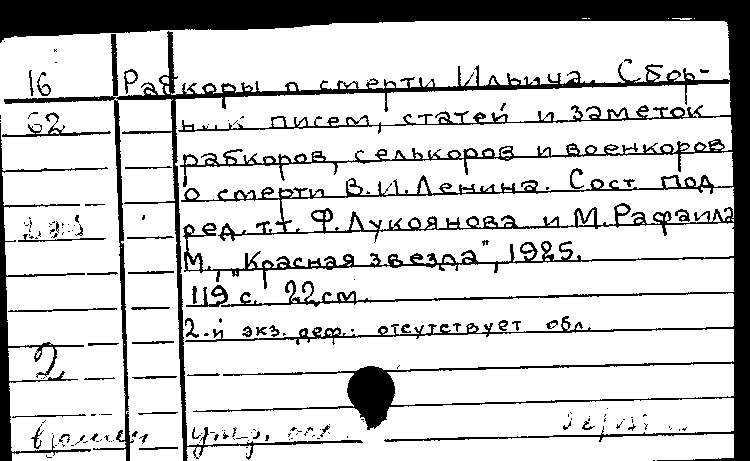 16 Рабкоры о смерти Ильича. Сбор-
62 ник писем, статей и заметок
рабкоров, селькоров и военкоров
о смерти В.И.Ленина. Сост. под
2 экз ред. т.т. Ф.Лукоянова и М.Рафаила
М., „Красная звезда", 1925.
119 с. 22см.
2-й экз. деф.: отсутствует обл.
2
взамен утр.